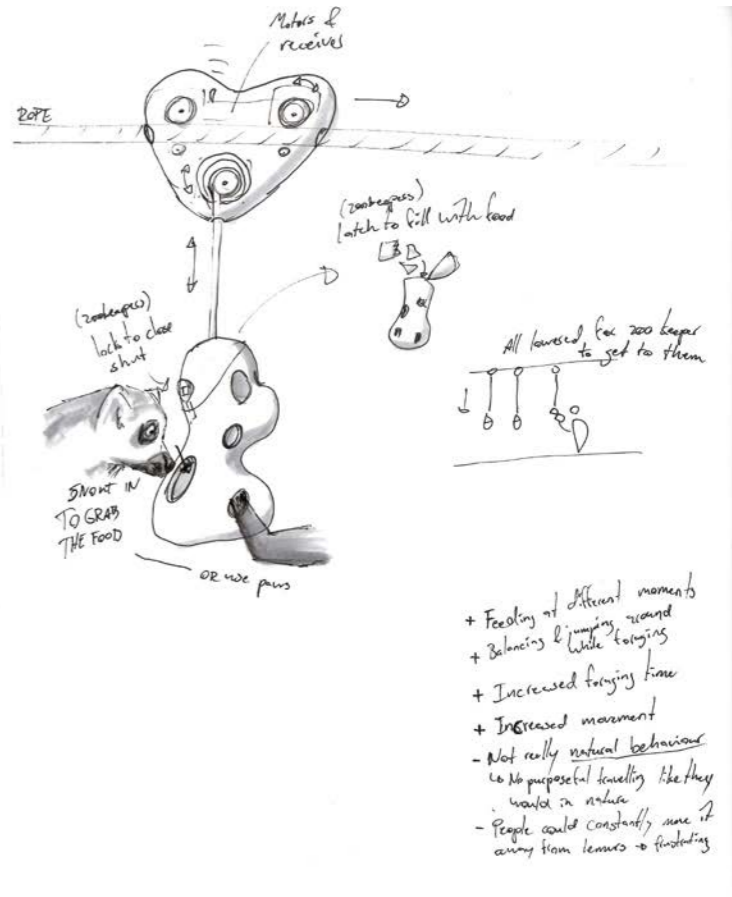 Motors &
receives
ROPE
(zookeepers)
latch to fill with food
(zookeepers)
lock to close
shut
All lowered for zoo keeper
to get to them
SNOUT IN
TO GRAB
THE FOOD
OR use paws
+ Feeding at different moments
+ Balancing & jumping around
while foraging
+ Increased foraging time
+ Increased movement
- Not really natural behaviour
↳ No purposeful travelling like they
would in nature
- People could constantly move it
away from lemurs → frustrating